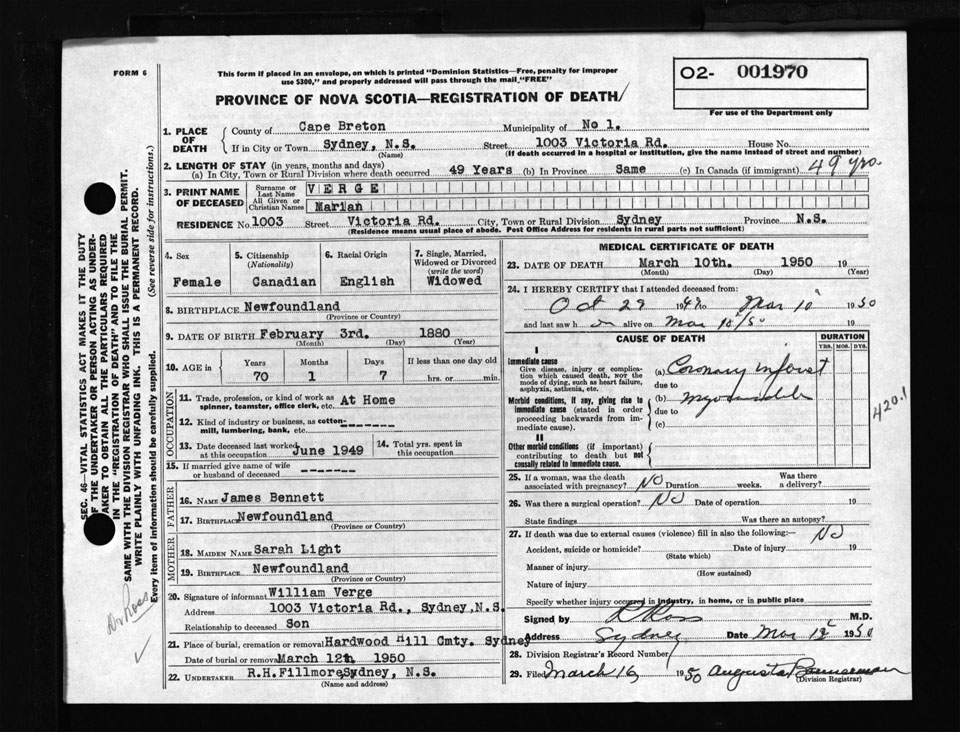 FORM 6
This form if placed in an envelope, on which is printed "Dominion Statistics—Free, penalty for improper
use $300," and properly addressed will pass through the mail, "FREE"
O2- 001970
For use of the Department only
PROVINCE OF NOVA SCOTIA—REGISTRATION OF DEATH
1. PLACE OF DEATH
County of Cape Breton Municipality of No 1.
If in City or Town Sydney, N.S. Street 1003 Victoria Rd. House No.
(Name) (If death occurred in a hospital or institution, give the name instead of street and number)
2. LENGTH OF STAY (in years, months and days)
(a) In City, Town or Rural Division where death occurred 49 Years (b) In Province Same (c) In Canada (if immigrant) 49 yrs.
3. PRINT NAME OF DECEASED
Surname or Last Name VERGE
All Given or Christian Names Marian
RESIDENCE No. 1003 Street Victoria Rd. City, Town or Rural Division Sydney Province N.S.
(Residence means usual place of abode. Post Office Address for residents in rural parts not sufficient)
4. Sex
Female
5. Citizenship
(Nationality)
Canadian
6. Racial Origin
English
7. Single, Married,
Widowed or Divorced
(write the word)
Widowed
8. BIRTHPLACE Newfoundland
(Province or Country)
9. DATE OF BIRTH February 3rd. 1880
(Month) (Day) (Year)
10. AGE in
Years Months Days If less than one day old
70 1 7 hrs. or min.
OCCUPATION
11. Trade, profession, or kind of work as
spinner, teamster, office clerk, etc. At Home
12. Kind of industry or business, as cotton-
mill, lumbering, bank, etc. -------
13. Date deceased last worked
at this occupation June 1949
14. Total yrs. spent in
this occupation
15. If married give name of wife
or husband of deceased -------
FATHER
16. NAME James Bennett
17. BIRTHPLACE Newfoundland
(Province or Country)
MOTHER
18. MAIDEN NAME Sarah Light
19. BIRTHPLACE Newfoundland
(Province or Country)
20. Signature of informant William Verge
Address 1003 Victoria Rd., Sydney, N.S.
Relationship to deceased Son
21. Place of burial, cremation or removal Hardwood Hill Cmty. Sydney
Date of burial or removal March 12th 1950
22. UNDERTAKER R.H.Fillmore, Sydney, N.S.
(Name and address)
MEDICAL CERTIFICATE OF DEATH
23. DATE OF DEATH March 10th. 1950 19
(Month) (Day) (Year)
24. I HEREBY CERTIFY that I attended deceased from:
Oct 29 1949 to Mar 10 1950
and last saw h er alive on Mar 10/50 19
CAUSE OF DEATH
DURATION
YRS. MOS. DYS.
I
Immediate cause
Give disease, injury or complication which caused death, NOT the mode of dying, such as heart failure, asphyxia, asthenia, etc.
(a) Coronary infarct
due to
Morbid conditions, if any, giving rise to immediate cause (stated in order proceeding backwards from immediate cause)
(b)
due to
(c)
II
Other morbid conditions (if important) contributing to death but not causally related to immediate cause.
420.1
25. If a woman, was the death
associated with pregnancy? NO Duration weeks. Was there
a delivery?
26. Was there a surgical operation? NO Date of operation 19
State findings Was there an autopsy?
27. If death was due to external causes (violence) fill in also the following:— NO
Accident, suicide or homicide? Date of injury 19
(State which)
Manner of injury
(How sustained)
Nature of injury
Specify whether injury occurred in industry, in home, or in public place
Signed by R Ross M.D.
Address Sydney Date Mar 12 1950
28. Division Registrar's Record Number
29. Filed March 16 1950 Augusta Bannerman
(Division Registrar)
SEC. 46—VITAL STATISTICS ACT MAKES IT THE DUTY
OF THE UNDERTAKER OR PERSON ACTING AS UNDER-
TAKER TO OBTAIN ALL THE PARTICULARS REQUIRED
IN THE "REGISTRATION OF DEATH" AND TO FILE THE
SAME WITH THE DIVISION REGISTRAR WHO SHALL ISSUE THE BURIAL PERMIT.
WRITE PLAINLY WITH UNFADING INK. THIS IS A PERMANENT RECORD.
Every item of information should be carefully supplied. (See reverse side for instructions.)
Dr Ross